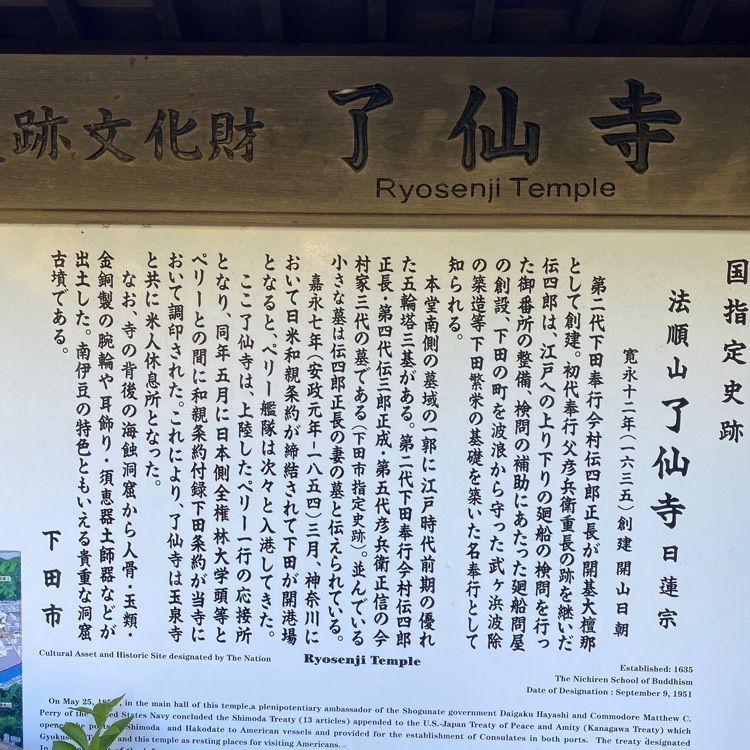 跡文化財 了仙寺
Ryosenji Temple
国指定史跡
法順山 了仙寺 日蓮宗
寛永十二年(一六三五)創建 開山日朝
第二代下田奉行今村伝四郎正長が開基大檀那
として創建。初代奉行父彦兵衛重長の跡を継いだ
伝四郎は、江戸への上り下りの廻船の検問を行っ
た御番所の整備、検問の補助にあたった廻船問屋
の創設、下田の町を波浪から守った武ヶ浜波除
の築造等下田繁栄の基礎を築いた名奉行として
知られる。
本堂南側の墓域の一郭に江戸時代前期の優れ
た五輪塔三基がある。第二代下田奉行今村伝四郎
正長・第四代伝三郎正成・第五代彦兵衛正信の今
村家三代の墓である(下田市指定史跡)。並んでいる
小さな墓は伝四郎正長の妻の墓と伝えられている。
嘉永七年(安政元年―一八五四)三月、神奈川に
おいて日米和親条約が締結されて下田が開港場
となると、ペリー艦隊は次々と入港してきた。
ここ了仙寺は、上陸したペリー一行の応接所
となり、同年五月に日本側全権 林大学頭等と
ペリーとの間に和親条約付録下田条約が当寺に
おいて調印された。これにより、了仙寺は玉泉寺
と共に米人休息所となった。
なお、寺の背後の海蝕洞窟から人骨・玉類・
金銅製の腕輪や耳飾り・須恵器土師器などが
出土した。南伊豆の特色ともいえる貴重な洞窟
古墳である。
下田市
Cultural Asset and Historic Site designated by The Nation
Ryosenji Temple
Established: 1635
The Nichiren School of Buddhism
Date of Designation : September 9, 1951
On May 25, in the main hall of this temple,a plenipotentiary ambassador of the Shogunate government Daigaku Hayashi and Commodore Matthew C.
Perry of the United States Navy concluded the Shimoda Treaty (13 articles) appended to the U.S.-Japan Treaty of Peace and Amity (Kanagawa Treaty) which
the Shimoda and Hakodate to American vessels and provided for the establishment of Consulates in both ports. The treaty designated
and this temple as resting places for visiting Americans.